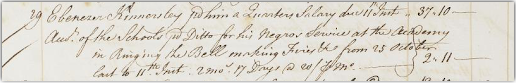 29 Ebenezer Kinnersley pd him a Quarters Salary due 11th Inst. 37.10 —
Aud. of the Schools pd Ditto for his Negros Service at the Academy
in Ringing the Bell making Fires &c from 25 October
last to 11th Inst. 2 mos. 17 Days @ 20/ pr mo. — 2.11 —